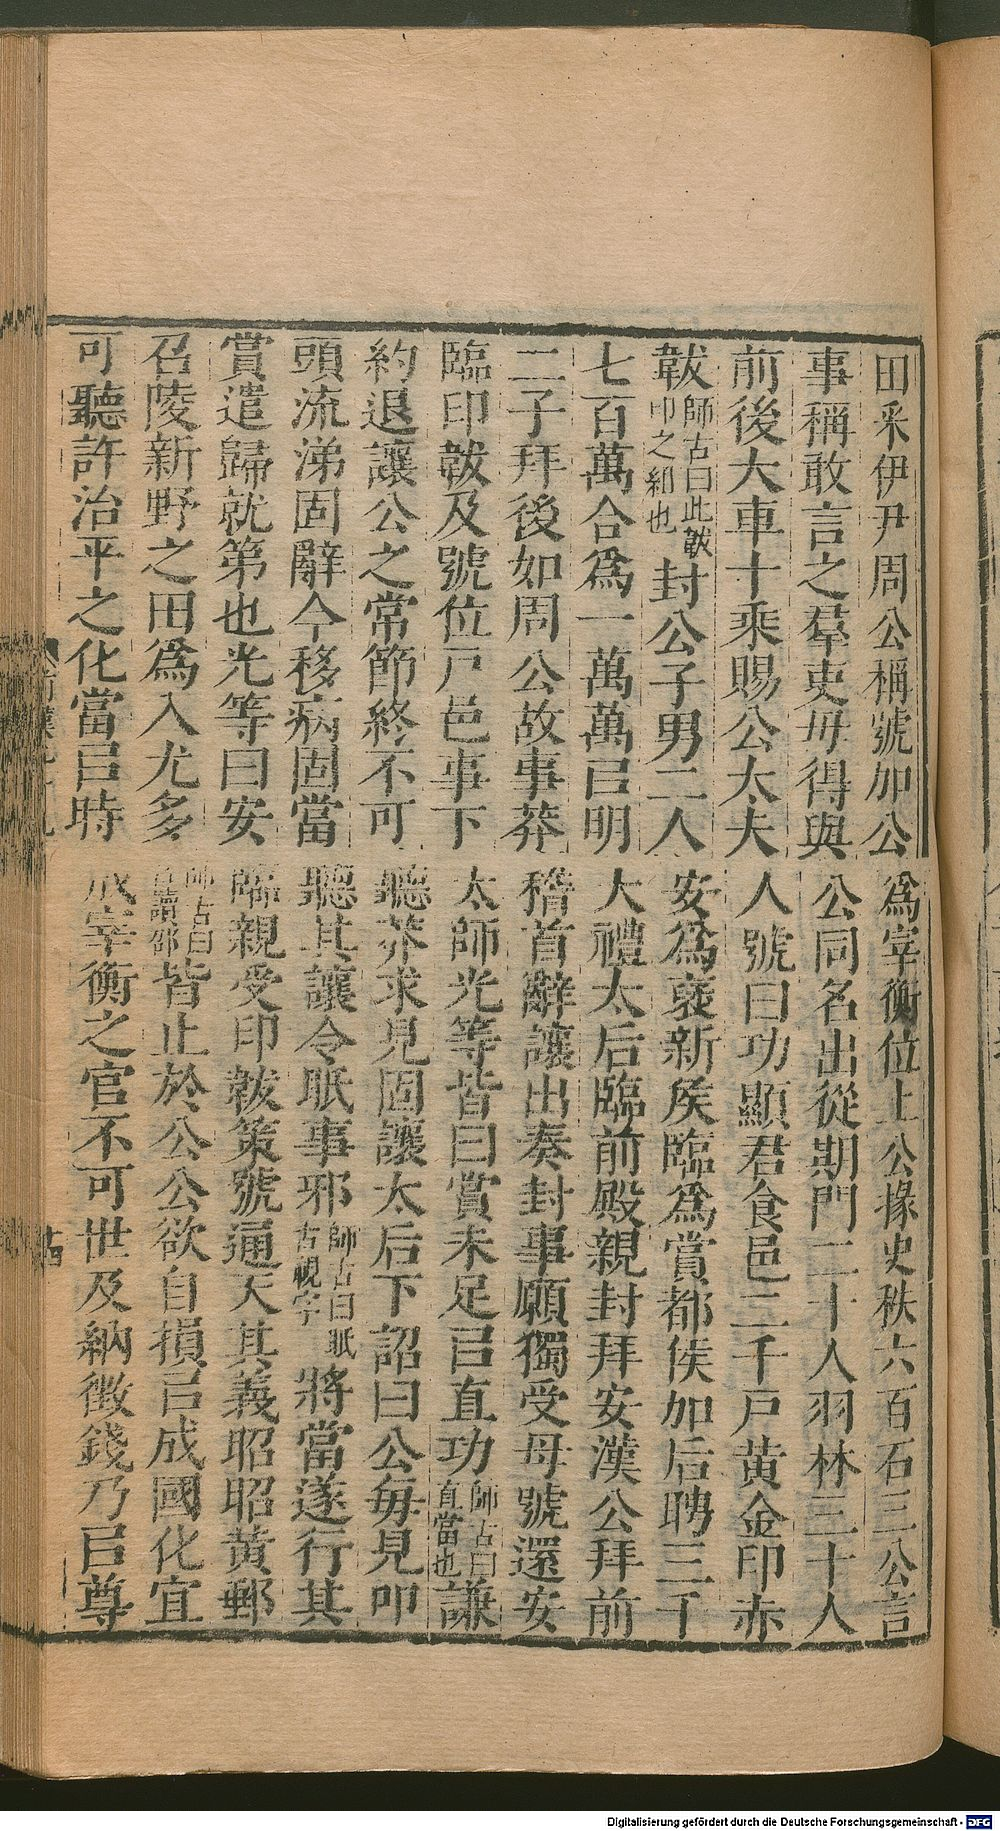 田采伊尹周公稱號加公爲宰衡位上公掾史秩六百石三公言
事稱敢言之羣吏毋得與公同名出從期門二十人羽林三十人
前後大車十乘賜公太夫人號曰功顯君食邑二千戸黄金印赤
韍師古曰此韍印之組也封公子男二人安爲襃新侯臨爲賞都侯加后聘三千
七百萬合爲一萬萬㠯明大禮太后臨前殿親封拜安漢公拜前
二子拜後如周公故事莽稽首辭讓出奏封事願獨受母號還安
臨印韍及號位戸邑事下太師光等皆曰賞未足㠯直功師古曰直當也謙
約退讓公之常節終不可聽莽求見固讓太后下詔曰公每見叩
頭流涕固辭今移病固當聽其讓令眂事邪師古曰眂古視字將當遂行其
賞遣歸就第也光等曰安臨親受印韍策號通天其義昭昭黄郵
召陵新野之田爲入尤多師古曰召讀邵皆止於公公欲自損㠯成國化宜
可聽許治平之化當㠯時成宰衡之官不可世及納徵錢乃㠯尊
Digitalisierung gefördert durch die Deutsche Forschungsgemeinschaft - DFG